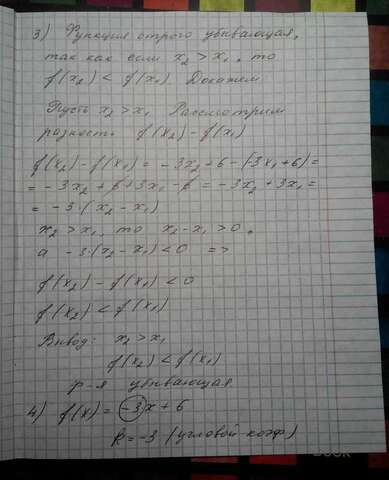 3) Функция строго убывающая,
так как если x₂ > x₁, то
f(x₂) < f(x₁). Докажем
Пусть x₂ > x₁ Рассмотрим
разность f(x₂) - f(x₁)
f(x₂) - f(x₁) = -3x₂ + 6 - (-3x₁ + 6) =
= -3x₂ + 6 + 3x₁ - 6 = -3x₂ + 3x₁ =
= -3·(x₂ - x₁)
x₂ > x₁, то x₂ - x₁ > 0,
а -3·(x₂ - x₁) < 0 =>
f(x₂) - f(x₁) < 0
f(x₂) < f(x₁)
Вывод: x₂ > x₁
f(x₂) < f(x₁)
р-я убывающая
4) f(x) = -3x + 6
k = -3 (угловой коэф)